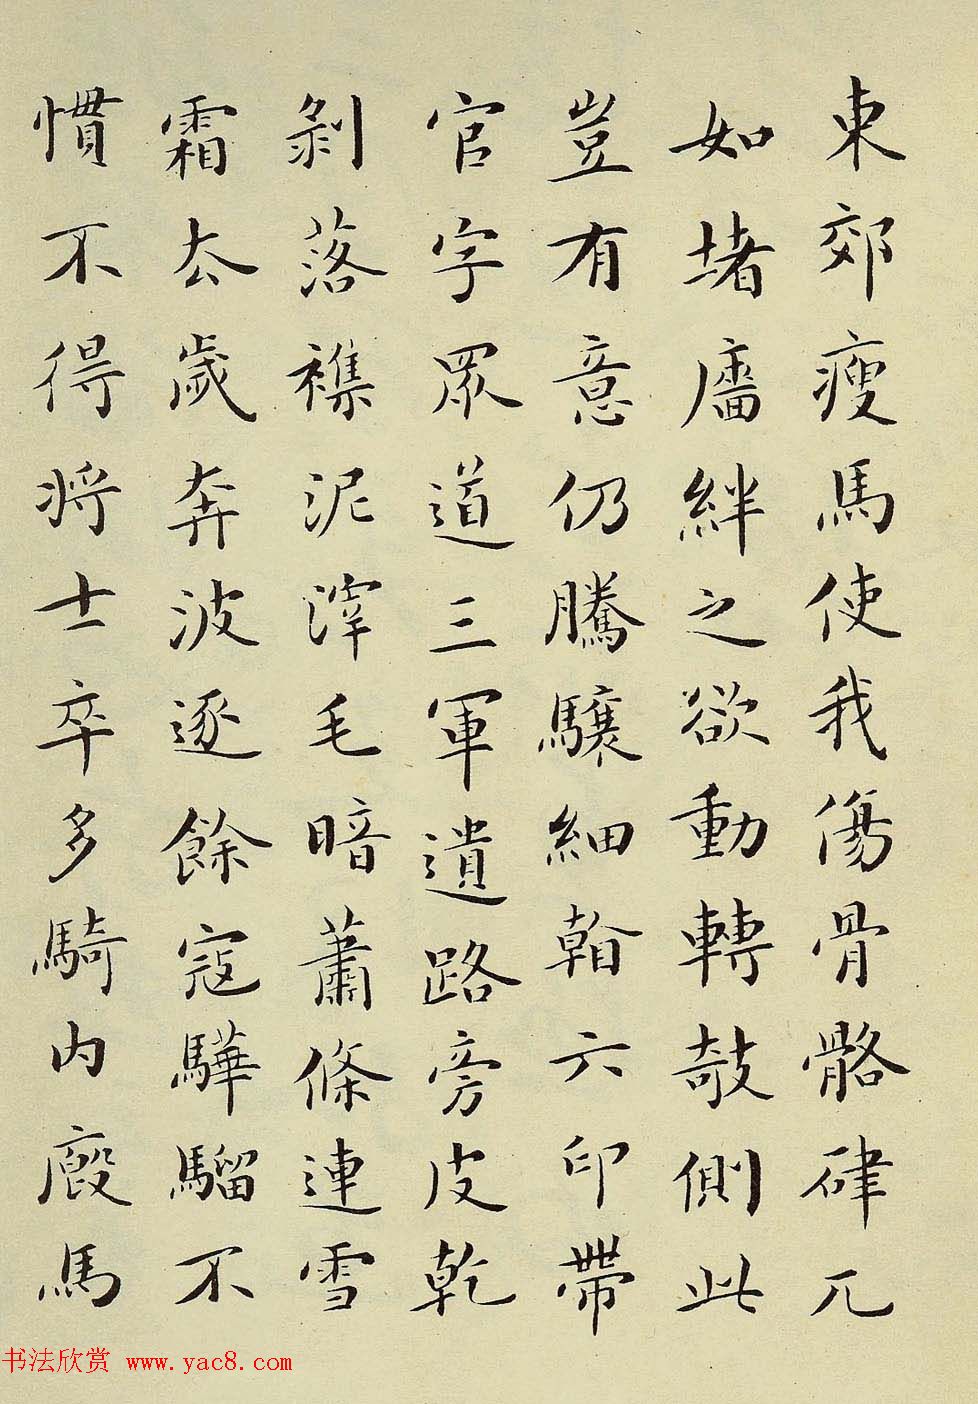 東郊瘦馬使我傷骨骼硉兀
如堵牆絆之欲動轉欹側此
豈有意仍騰驤細看六印帶
官字眾道三軍遺路旁皮乾
剝落襍泥滓毛暗蕭條連雪
霜去歲奔波逐餘寇驊騮不
慣不得将士卒多騎内廄馬
书法欣赏 www.yac8.com